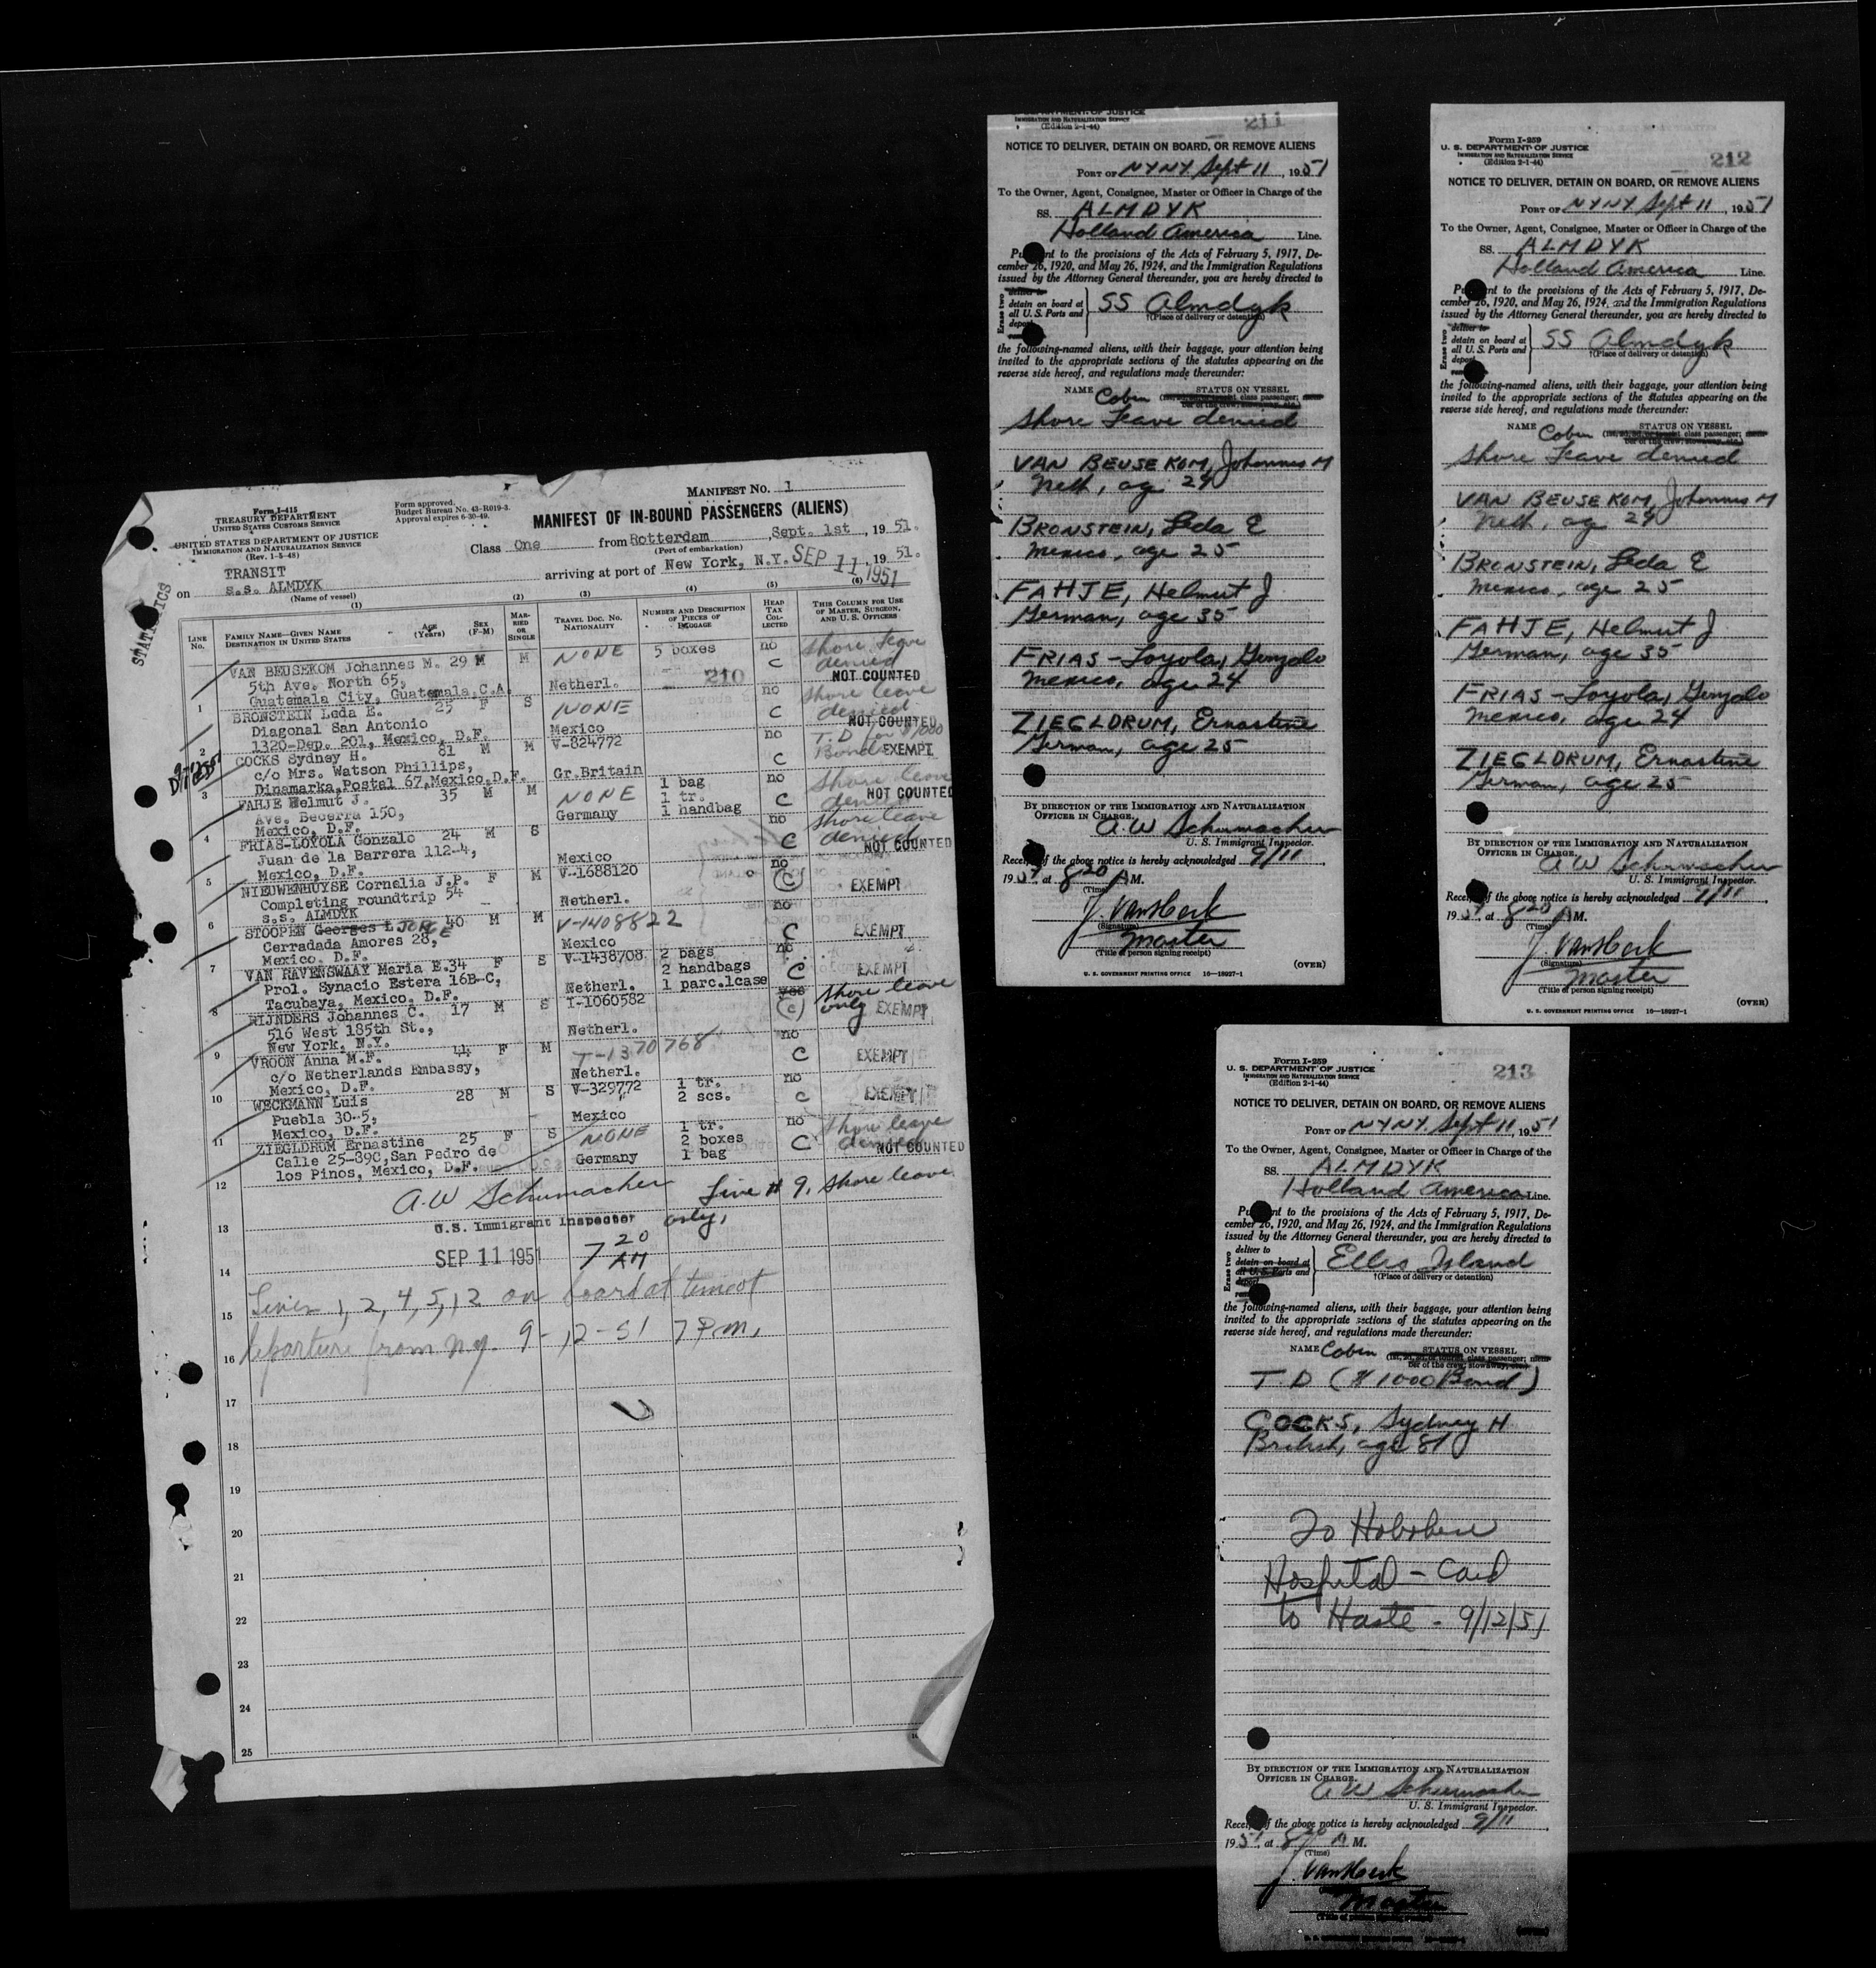 Form I-415
TREASURY DEPARTMENT
UNITED STATES CUSTOMS SERVICE
UNITED STATES DEPARTMENT OF JUSTICE
IMMIGRATION AND NATURALIZATION SERVICE
(Rev. 1-5-48)
Form approved.
Budget Bureau No. 43-R019-3.
Approval expires 6-30-49.
MANIFEST No. 1
MANIFEST OF IN-BOUND PASSENGERS (ALIENS)
Class One from Rotterdam, Sept. 1st, 1951.
(Port of embarkation)
TRANSIT
on s.s. ALMDYK arriving at port of New York, N.Y. SEP 11 1951 , 1951.
(Name of vessel)
STATISTICS
(1) (2) (3) (4) (5) (6)
LINE No.
FAMILY NAME—GIVEN NAME AGE (Years) SEX (F-M)
DESTINATION IN UNITED STATES
MARRIED OR SINGLE
TRAVEL DOC. No. NATIONALITY
NUMBER AND DESCRIPTION OF PIECES OF BAGGAGE
HEAD TAX COLLECTED
THIS COLUMN FOR USE OF MASTER, SURGEON, AND U. S. OFFICERS
VAN BEUSEKOM Johannes M. 29 M M NONE 5 boxes no shore leave
5th Ave. North 65, Netherl. 210 C denied
1 Guatemala City, Guatemala, C.A. NOT COUNTED
BRONSTEIN Leda E. 25 F S NONE no shore leave
Diagonal San Antonio Mexico C denied
2 1320-Dep. 201, Mexico, D.F. NOT COUNTED
COCKS Sydney H. 81 M M V-824772 no T.D for $1000
c/o Mrs. Watson Phillips, Gr.Britain C Bond EXEMPT
3 Dinamarka, Postal 67, Mexico, D.F.
FAHJE Helmut J. 35 M M NONE 1 bag no shore leave
Ave. Becerra 150, Germany 1 tr. C denied
4 Mexico, D.F. 1 handbag NOT COUNTED
FRIAS-LOYOLA Gonzalo 24 M S no shore leave
Juan de la Barrera 112-4, Mexico C denied
5 Mexico, D.F. NOT COUNTED
NIEUWENHUYSE Cornelia J.P. F M V-1688120 no
Completing roundtrip 54 Netherl. C EXEMPT
6 s.s. ALMDYK
STOOPEN Georges L JORGE 40 M M V-1408822 no
Cerradada Amores 28, Mexico C EXEMPT
7 Mexico, D.F.
VAN RAVENSWAAY Maria E. 34 F S V-1438708 2 bags no
Prol. Synacio Estera 16B-C, Netherl. 2 handbags C EXEMPT
8 Tacubaya, Mexico, D.F. 1 parc.1case
RIJNDERS Johannes C. 17 M S I-1060582 yes shore leave
516 West 185th St., Netherl. (c) only EXEMPT
9 New York, N.Y.
VROON Anna M.F. 44 F M T-1370768 no
c/o Netherlands Embassy, Netherl. C EXEMPT
10 Mexico, D.F.
WECKMANN Luis 28 M S V-329772 1 tr. no
Puebla 30-5, Mexico 2 scs. c EXEMPT
11 Mexico, D.F.
ZIEGLDRUM Ernastine 25 F S NONE 1 tr. no shore leave
Calle 25-89C, San Pedro de Germany 2 boxes C denied
12 los Pinos, Mexico, D.F. 1 bag NOT COUNTED
A.W Schumacher Line # 9, shore leave
13 U.S. Immigrant Inspector only,
14 SEP 11 1951 7 20 AM
15 Lines 1, 2, 4, 5, 12 on board at time of
16 departure from N.Y. 9-12-51 7 P.m.
17
18
19
20
21
22
23
24
25
U. S. DEPARTMENT OF JUSTICE
IMMIGRATION AND NATURALIZATION SERVICE
(Edition 2-1-44)
211
NOTICE TO DELIVER, DETAIN ON BOARD, OR REMOVE ALIENS
PORT OF NYNY Sept 11, 1951
To the Owner, Agent, Consignee, Master or Officer in Charge of the
SS. ALMDYK
Holland America Line.
Pursuant to the provisions of the Acts of February 5, 1917, De-
cember 26, 1920, and May 26, 1924, and the Immigration Regulations
issued by the Attorney General thereunder, you are hereby directed to
Erase two
deliver to
detain on board at
all U. S. Ports and
deport
SS Almdyk
†(Place of delivery or detention)
the following-named aliens, with their baggage, your attention being
invited to the appropriate sections of the statutes appearing on the
reverse side hereof, and regulations made thereunder:
NAME Cabin STATUS ON VESSEL
Shore Leave denied
VAN BEUSEKOM, Johannes M
Neth, age 29
BRONSTEIN, Leda E
Mexico, age 25
FAHJE, Helmut J
German, age 35
FRIAS-Loyola, Gonzalo
Mexico, age 24
ZIEGLDRUM, Ernastine
German, age 25
BY DIRECTION OF THE IMMIGRATION AND NATURALIZATION
OFFICER IN CHARGE.
A.W Schumacher
U. S. Immigrant Inspector.
Receipt of the above notice is hereby acknowledged 9/11,
1951 at 8 20 A M.
(Time)
J. VanHerk
(Signature)
Master
(Title of person signing receipt)
(OVER)
U. S. GOVERNMENT PRINTING OFFICE 16—18927-1
Form I-259
U. S. DEPARTMENT OF JUSTICE
IMMIGRATION AND NATURALIZATION SERVICE
(Edition 2-1-44)
212
NOTICE TO DELIVER, DETAIN ON BOARD, OR REMOVE ALIENS
PORT OF NYNY Sept 11, 1951
To the Owner, Agent, Consignee, Master or Officer in Charge of the
SS. ALMDYK
Holland America Line.
Pursuant to the provisions of the Acts of February 5, 1917, De-
cember 26, 1920, and May 26, 1924, and the Immigration Regulations
issued by the Attorney General thereunder, you are hereby directed to
Erase two
deliver to
detain on board at
all U. S. Ports and
deport
SS Almdyk
†(Place of delivery or detention)
the following-named aliens, with their baggage, your attention being
invited to the appropriate sections of the statutes appearing on the
reverse side hereof, and regulations made thereunder:
NAME Cabin STATUS ON VESSEL
Shore Leave denied
VAN BEUSEKOM, Johannes M
Neth, age 29
BRONSTEIN, Leda E
Mexico, age 25
FAHJE, Helmut J
German, age 35
FRIAS-Loyola, Gonzalo
Mexico, age 24
ZIEGLDRUM, Ernastine
German, age 25
BY DIRECTION OF THE IMMIGRATION AND NATURALIZATION
OFFICER IN CHARGE.
A W Schumacher
U. S. Immigrant Inspector.
Receipt of the above notice is hereby acknowledged 9/11,
1951 at 8 20 A M.
(Time)
J. VanHerk
(Signature)
Master
(Title of person signing receipt)
(OVER)
U. S. GOVERNMENT PRINTING OFFICE 16—18927-1
Form I-259
U. S. DEPARTMENT OF JUSTICE
IMMIGRATION AND NATURALIZATION SERVICE
(Edition 2-1-44)
213
NOTICE TO DELIVER, DETAIN ON BOARD, OR REMOVE ALIENS
PORT OF NYNY. Sept 11, 1951
To the Owner, Agent, Consignee, Master or Officer in Charge of the
SS. ALMDYK
Holland America Line.
Pursuant to the provisions of the Acts of February 5, 1917, De-
cember 26, 1920, and May 26, 1924, and the Immigration Regulations
issued by the Attorney General thereunder, you are hereby directed to
Erase two
deliver to
detain on board at
all U. S. Ports and
deport
Ellis Island
†(Place of delivery or detention)
the following-named aliens, with their baggage, your attention being
invited to the appropriate sections of the statutes appearing on the
reverse side hereof, and regulations made thereunder:
NAME Cabin STATUS ON VESSEL
T.D ($1000 Bond)
COCKS, Sydney H
British, age 81
To Hoboken
Hospital -
to - 9/12/51
BY DIRECTION OF THE IMMIGRATION AND NATURALIZATION
OFFICER IN CHARGE.
A W Schumacher
U. S. Immigrant Inspector.
Receipt of the above notice is hereby acknowledged 9/11,
1951, at 8 20 A M.
(Time)
J. VanHerk
Master
(Title of person signing receipt)